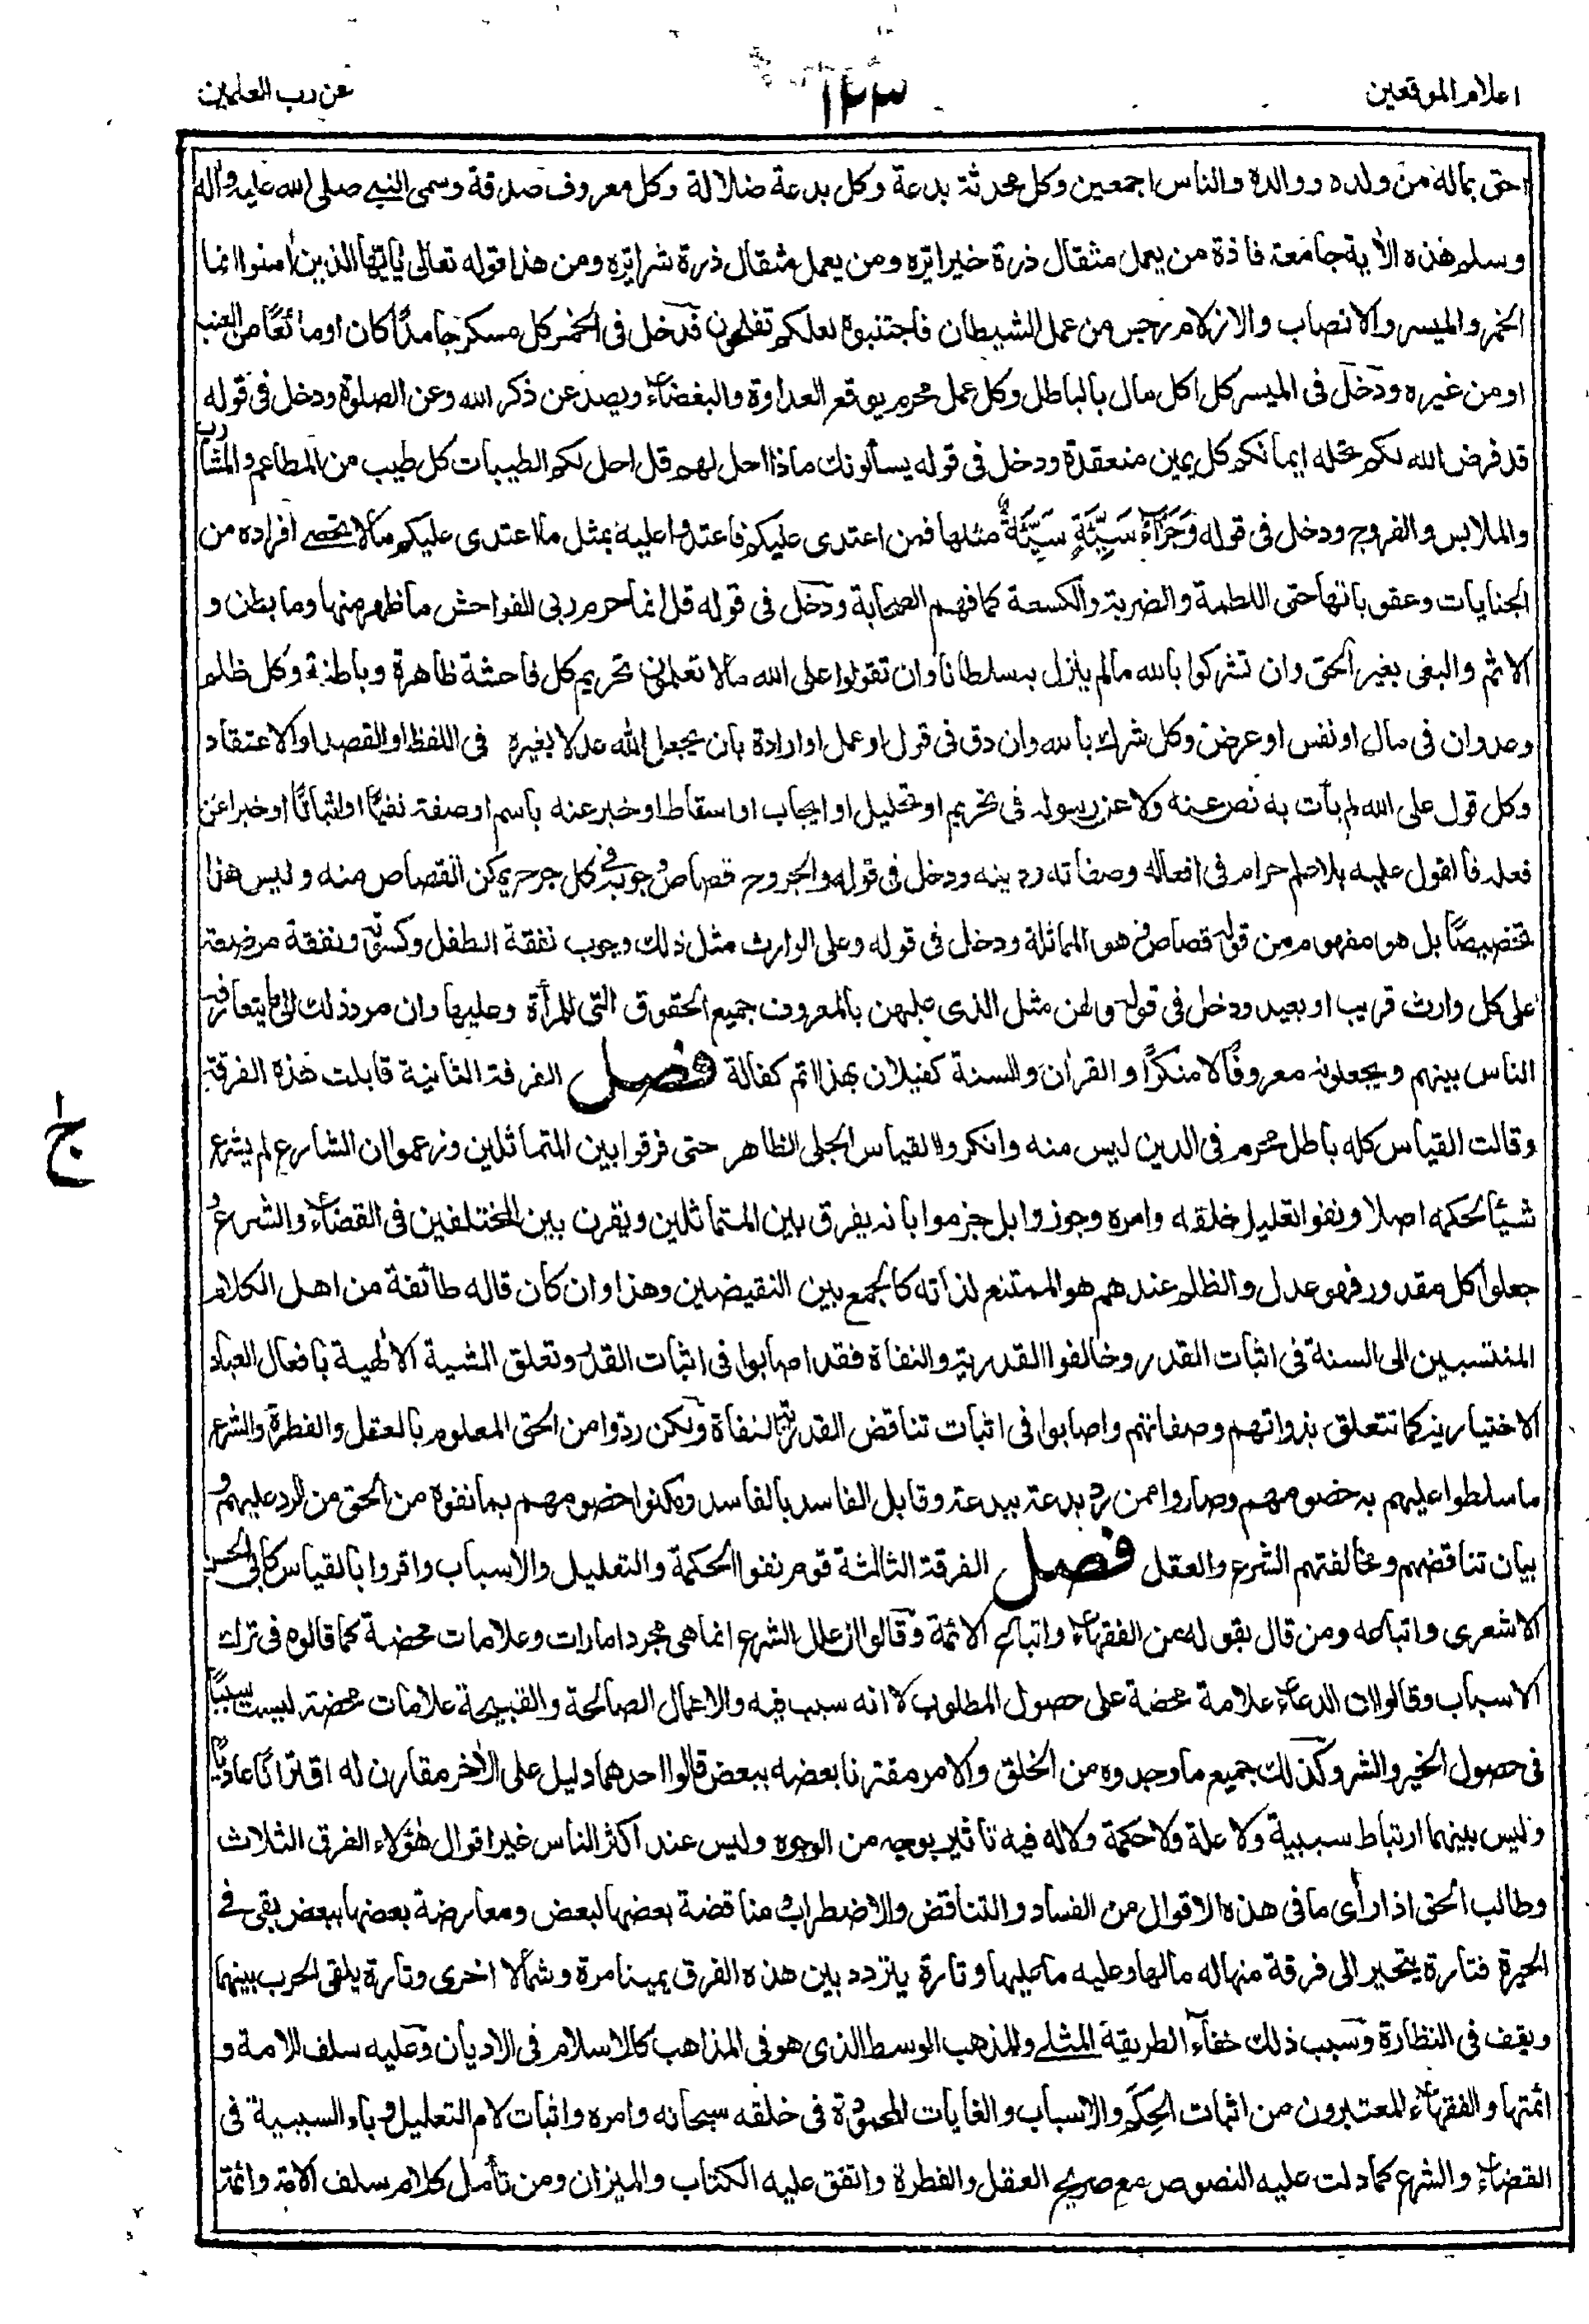 اعلام الموقعين
١٢٣
عن رب العلمين
احق بماله من ولده ووالده والناس اجمعين وكل محدثة بدعة وكل بدعة ضلالة وكل معروف صدقة وسمى النبي صلى الله عليه وآله
وسلم هذه الآية جامعة فاذة من يعمل مثقال ذرة خيرا يره ومن يعمل مثقال ذرة شرا يره ومن هذا قوله تعالى يٰايّها الذين اٰمنوا انما
الخمر والميسر والانصاب والازلام رجس من عمل الشيطان فاجتنبوه لعلكم تفلحون فدخل فى الخمر كل مسكر جامدًا كان او مائعًا من العنب
او من غيره ودخل فى الميسر كل اكل مال بالباطل وكل عمل محرم يوقع العداوة والبغضاء ويصد عن ذكر الله وعن الصلوة ودخل فى قوله
قد فرض الله لكم تحلة ايمانكم كل يمين منعقدة ودخل فى قوله يسألونك ماذا احل لهم قل احل لكم الطيبات كل طيب من المطاعم والمشارب
والملابس والفروج ودخل فى قوله وَجَزَآءُ سَيِّئَةٍ سَيِّئَةٌ مثلها فمن اعتدى عليكم فاعتدوا عليه بمثل ما اعتدى عليكم مالا تحصى افراده من
الجنايات وعقوباتها حتى اللطمة والضربة والكسعة كما فهم الصحابة ودخل فى قوله قل انما حرم ربى الفواحش ما ظهر منها وما بطن و
الاثم والبغى بغير الحق وان تشركوا بالله مالم ينزل به سلطانا وان تقولوا على الله مالا تعلمون تحريم كل فاحشة ظاهرة وباطنة وكل ظلم
وعدوان فى مال او نفس او عرض وكل شرك بالله وان دق فى قول او عمل او ارادة بان يجعل الله عدلا بغيره فى اللفظ او القصد او الاعتقاد
وكل قول على الله لم يأت به نص عنه ولا عن رسوله فى تحريم او تحليل او ايجاب او اسقاط او خبر عنه باسم او صفة نفيًا او اثباتًا او خبرا عن
فعله فالقول عليه بلا علم حرام فى افعاله وصفاته ودينه ودخل فى قوله والجروح قصاص وجوبه فى كل جرح يمكن القصاص منه وليس هذا
تخصيصًا بل هو مفهوم من قوله قصاص وهو المماثلة ودخل فى قوله وعلى الوارث مثل ذلك وجوب نفقة الطفل وكسوته ونفقة مرضعته
على كل وارث قريب او بعيد ودخل فى قوله ولهن مثل الذى عليهن بالمعروف جميع الحقوق التى للمرأة وعليها وان مرد ذلك الى ما يتعارفه
الناس بينهم ويجعلونه معروفًا لا منكرًا والقرآن والسنة كفيلان بهذا اتم كفالة فصل الفرقة الثانية قابلت هذه الفرقة
وقالت القياس كله باطل محرم فى الدين ليس منه وانكروا القياس الجلى الظاهر حتى فرقوا بين المتماثلين وزعموا ان الشارع لم يشرع
شيئًا لحكمة اصلا ونفوا تعليل خلقه وامره وجوزوا بل جزموا بانه يفرق بين المتماثلين ويقرن بين المختلفين فى القضاء والشرع و
جعلوا كل مقدور فهو عدل والظلم عندهم هو الممتنع لذاته كالجمع بين النقيضين وهذا وان كان قاله طائفة من اهل الكلام
المنتسبين الى السنة فى اثبات القدر وخالفوا القدرية والنفاة فقد اصابوا فى اثبات القدر وتعلق المشية الالٰهية بافعال العباد
الاختيارية كما تتعلق بذواتهم وصفاتهم واصابوا فى اثبات تناقض القدرية النفاة ولكن ردّوا من الحق المعلوم بالعقل والفطرة والشرع
ما سلطوا عليهم به خصومهم وصاروا ممن رد بدعة ببدعة وقابل الفاسد بالفاسد ومكنوا خصومهم بما نفوه من الحق من الرد عليهم و
بيان تناقضهم ومخالفتهم الشرع والعقل فصل الفرقة الثالثة قوم نفوا الحكمة والتعليل والاسباب واقروا بالقياس كابى الحسن
الاشعرى واتباعه ومن قال بقوله من الفقهاء واتباع الائمة وقالوا ان علل الشرع انما هى مجرد امارات وعلامات محضة كما قالوه فى ترك
الاسباب وقالوا ان الدعاء علامة محضة على حصول المطلوب لا انه سبب فيه والاعمال الصالحة والقبيحة علامات محضة ليست سببًا
فى حصول الخير والشر وكذلك جميع ما وجدوه من الخلق والامر مقترنا بعضه ببعض قالوا احدهما دليل على الآخر مقارن له اقترانًا عاديًا
وليس بينهما ارتباط سببية ولا علة ولا حكمة ولا له فيه تأثير بوجه من الوجوه وليس عند اكثر الناس غير اقوال هٰؤلاء الفرق الثلاث
وطالب الحق اذا رأى ما فى هذه الاقوال من الفساد والتناقض والاضطراب ومناقضة بعضها لبعض ومعارضة بعضها ببعض بقى فى
الحيرة فتارة يتحيز الى فرقة منها له مالها وعليه ما عليها وتارة يتردد بين هذه الفرق يمينا مرة وشمالا اخرى وتارة يلقى الحرب بينهما
ويقف فى النظارة وسبب ذلك خفاء الطريقة المثلى والمذهب الوسط الذى هو فى المذاهب كالاسلام فى الاديان وعليه سلف الامة و
ائمتها والفقهاء المعتبرون من اثبات الحِكَم والاسباب والغايات المحمودة فى خلقه سبحانه وامره واثبات لام التعليل وباء السببية فى
القضاء والشرع كما دلت عليه النصوص مع صريح العقل والفطرة واتفق عليه الكتاب والميزان ومن تأمل كلام سلف الامة وائمة
ج١